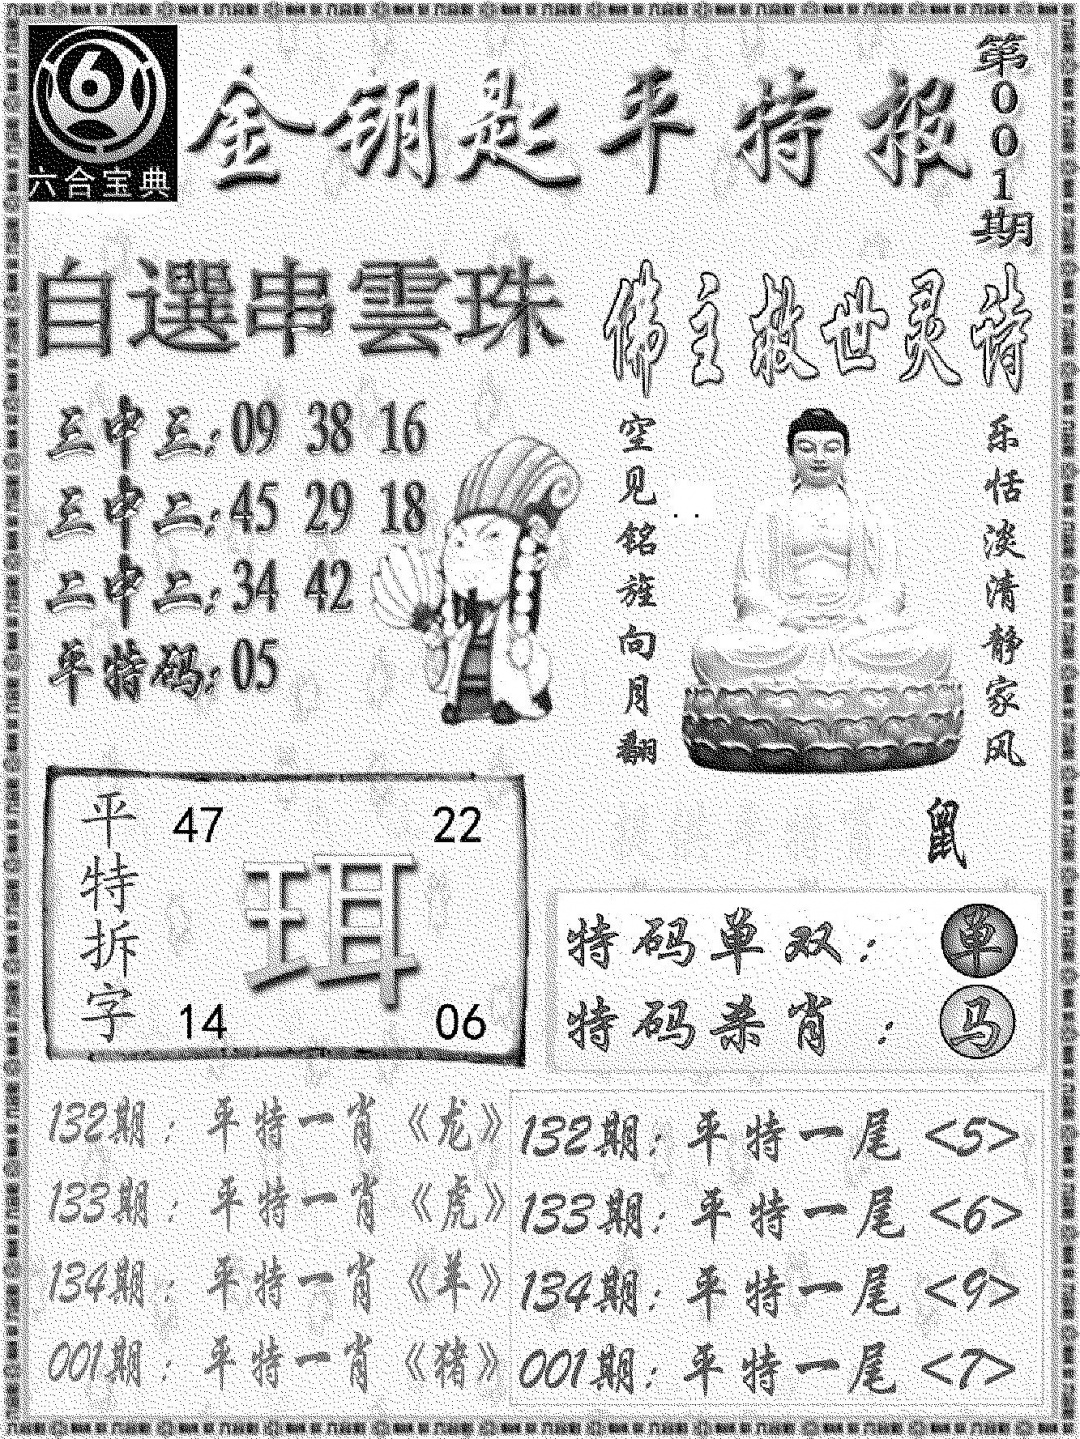 六合宝典
金钥匙平特报
第001期
自選串雲珠
三中三:09 38 16
三中二:45 29 18
二中二:34 42
平特码:05
佛主救世灵诗
空见铭旌向月翻
乐恬淡清静家风
鼠
平特拆字
47 22
珥
14 06
特码单双: 单
特码杀肖: 马
132期:平特一肖《龙》
133期:平特一肖《虎》
134期:平特一肖《羊》
001期:平特一肖《猪》
132期:平特一尾<5>
133期:平特一尾<6>
134期:平特一尾<9>
001期:平特一尾<7>